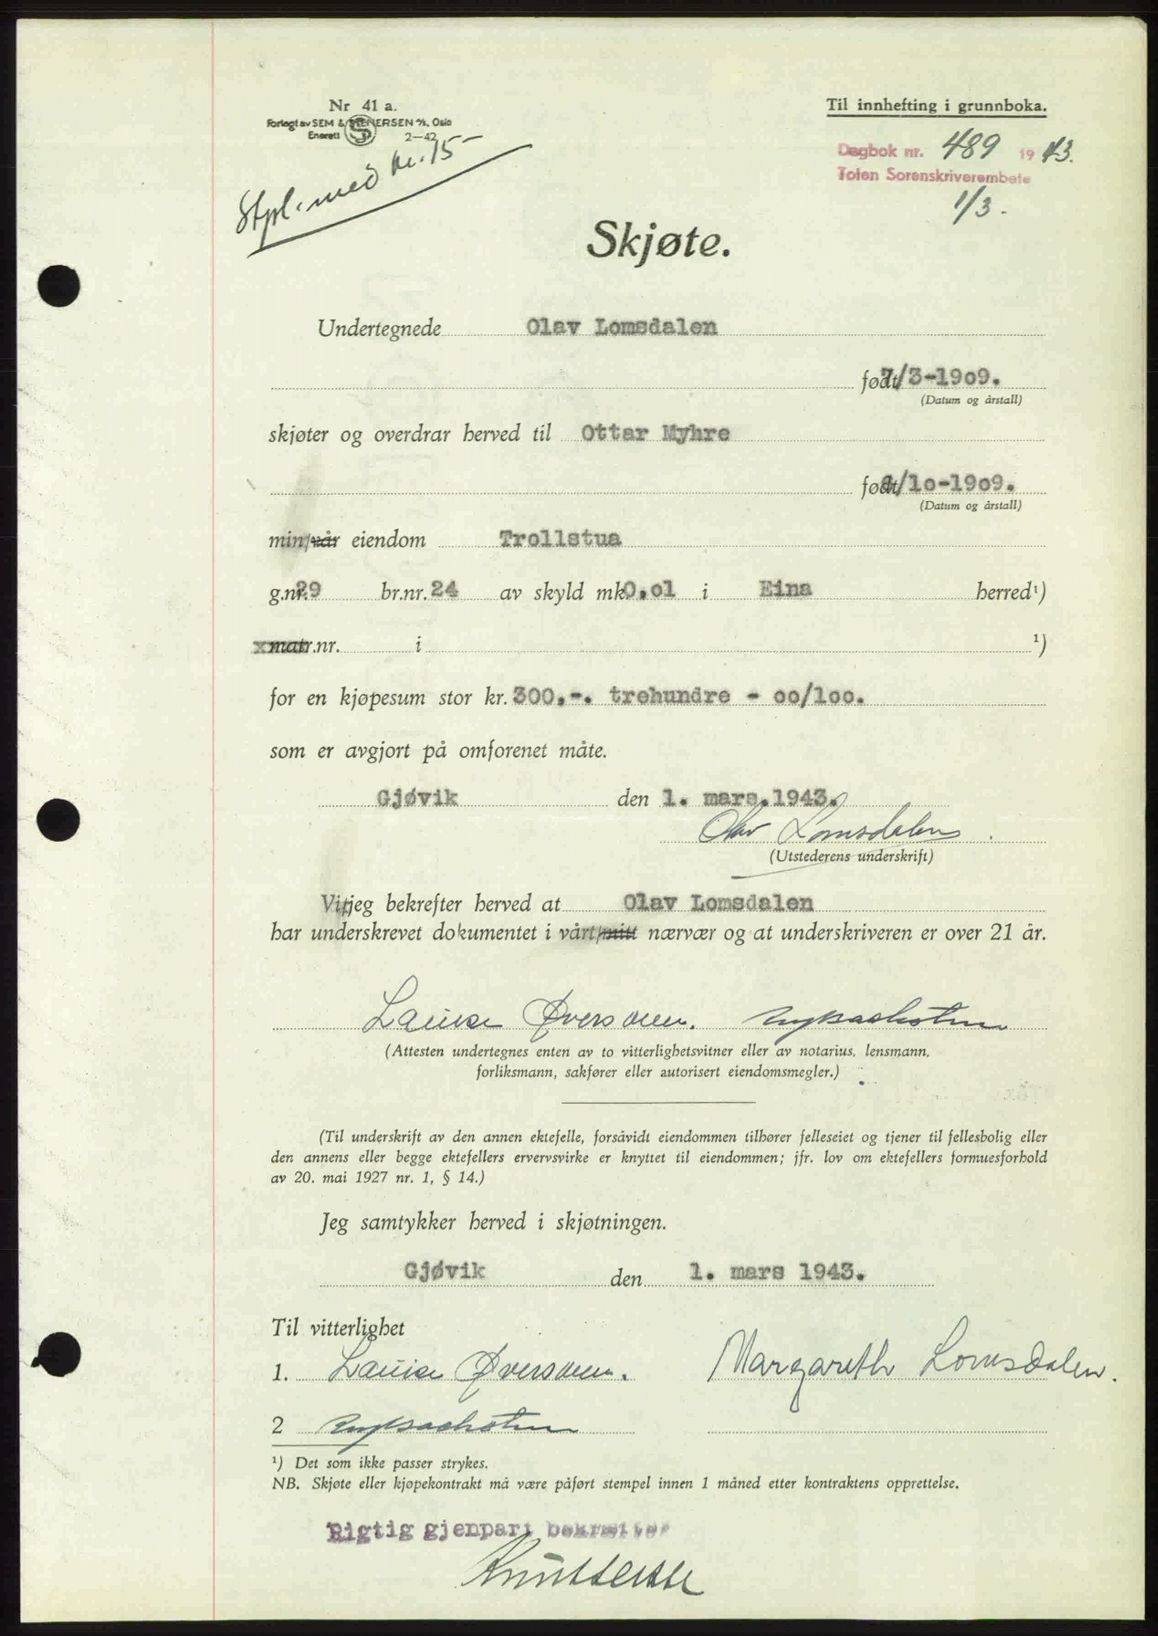 Nr 41 a.
Forlagt av SEM & STENERSEN A/S, Oslo
Enerett 2-42
Til innhefting i grunnboka.
Dagbok nr. 489 1943.
Toten Sorenskriverembete
1/3.
Stpl. med kr. 15-
Skjøte.
Undertegnede Olav Lomsdalen
født 7/3-1909.
(Datum og årstall)
skjøter og overdrar herved til Ottar Myhre
født /10-1909.
(Datum og årstall)
min/vår eiendom Trollstua
g.nr. 29 br.nr. 24 av skyld mk 0.01 i Eina herred¹)
matr.nr. i ¹)
for en kjøpesum stor kr. 300,-. trehundre - oo/loo.
som er avgjort på omforenet måte.
Gjøvik den 1. mars.1943.
Olav Lomsdalen
(Utstederens underskrift)
Vi/jeg bekrefter herved at Olav Lomsdalen
har underskrevet dokumentet i vårt/mitt nærvær og at underskriveren er over 21 år.
(Attesten undertegnes enten av to vitterlighetsvitner eller av notarius, lensmann,
forliksmann, sakfører eller autorisert eiendomsmegler.)
(Til underskrift av den annen ektefelle, forsåvidt eiendommen tilhører felleseiet og tjener til fellesbolig eller
den annens eller begge ektefellers ervervsvirke er knyttet til eiendommen; jfr. lov om ektefellers formuesforhold
av 20. mai 1927 nr. 1, § 14.)
Jeg samtykker herved i skjøtningen.
Gjøvik den 1. mars 1943.
Til vitterlighet
1. Margareth Lomsdalen.
2
¹) Det som ikke passer strykes.
NB. Skjøte eller kjøpekontrakt må være påført stempel innen 1 måned etter kontraktens opprettelse.
Rigtig gjenpart bekræftes